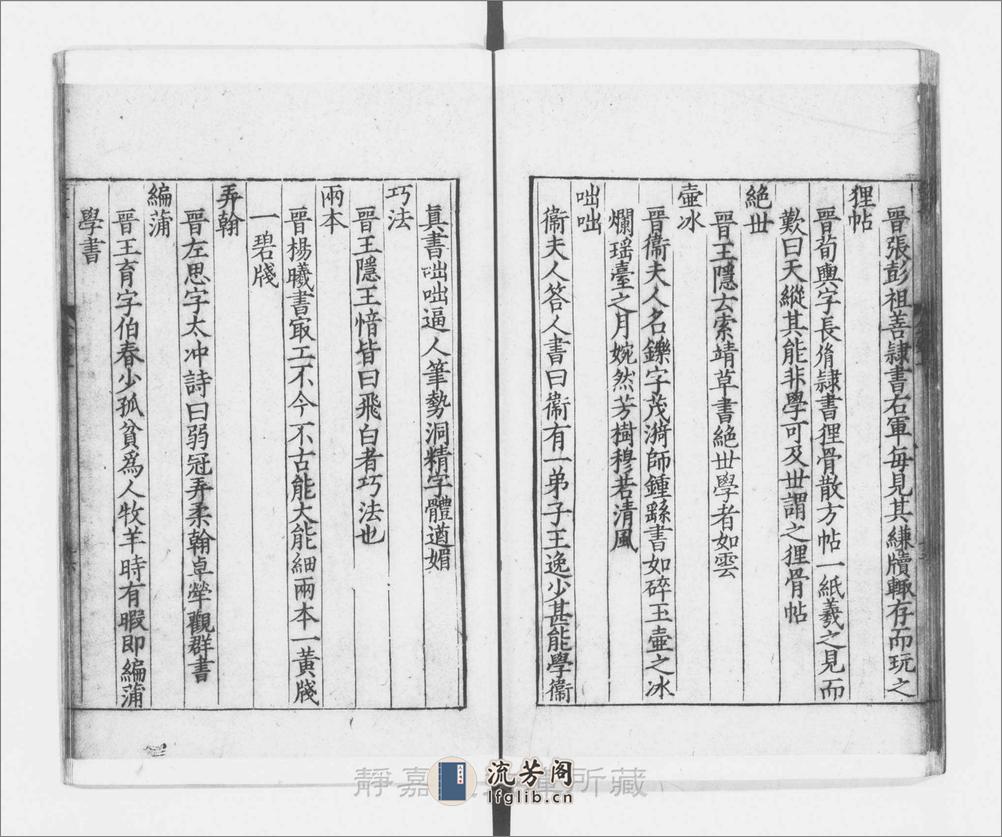 晉張彭祖善隷書右軍毎見其縑牘輙存而玩之
狸帖
晉荀輿字長胤隷書狸骨散方帖一紙羲之見而
歎曰天縱其能非學可及丗謂之狸骨帖
絶丗
晉王隱云索靖草書絶丗學者如雲
壷冰
晉衞夫人名鑠字茂漪師鍾繇書如碎玉壷之冰
爛瑶臺之月婉然芳樹穆若清風
咄咄
衞夫人答人書曰衞有一弟子王逸少甚能學衞
真書咄咄逼人筆勢洞精字體遒媚
巧法
晉王隱王愔皆曰飛白者巧法也
兩本
晉楊曦書㝡工不今不古能大能細兩本一黃牋
一碧牋
弄翰
晉左思字太冲詩曰弱冠弄柔翰卓犖觀群書
編蒲
晉王育字伯春少孤貧爲人牧羊時有暇即編蒲
學書
靜嘉 所藏
流芳阁
lfglib.cn